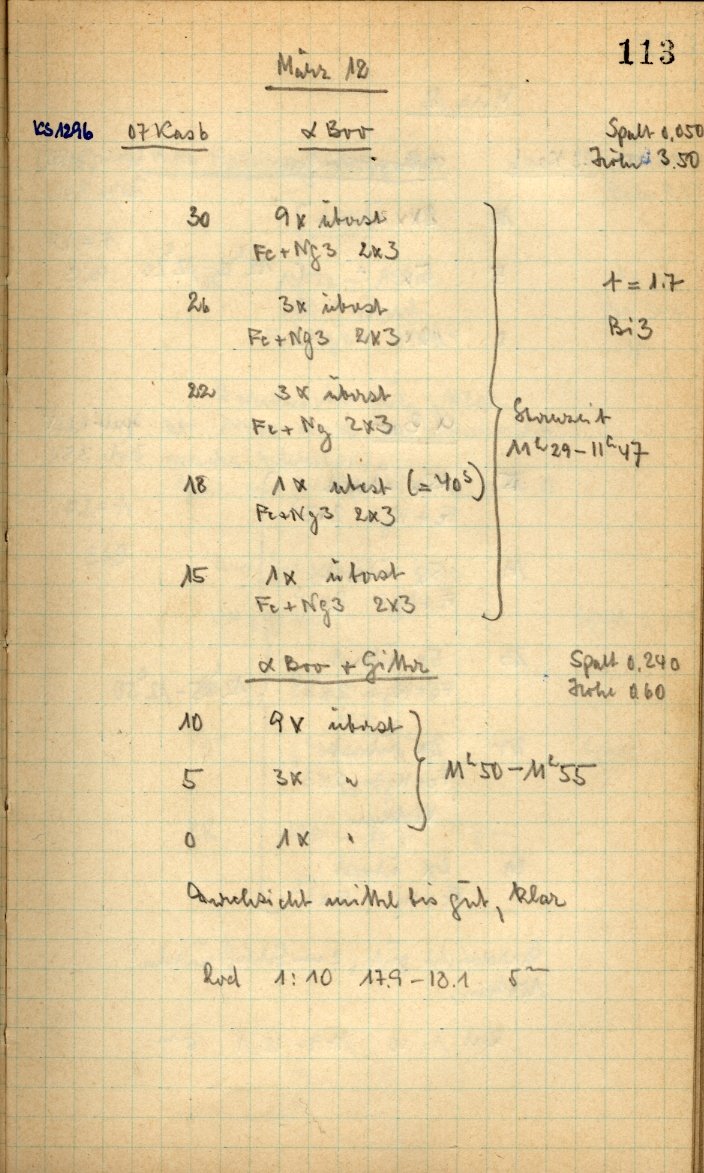 113
März 12
KS1296 07 Kasb α Boo Spalt 0,050
Höhe 3.50
30 9x überst
Fe+Ng3 2x3
t = 1.7
26 3x überst
Fe+Ng3 2x3
Bi3
22 3x überst
Fe+Ng 2x3
Sternzeit
11h29-11h47
18 1x überst (=40s)
Fe+Ng3 2x3
15 1x überst
Fe+Ng3 2x3
α Boo + Gitter Spalt 0,240
Höhe 0.60
10 9x überst
5 3x " 11h50-11h55
0 1x "
Durchsicht mittel bis gut, klar
Rod 1:10 17.9-18.1 5m